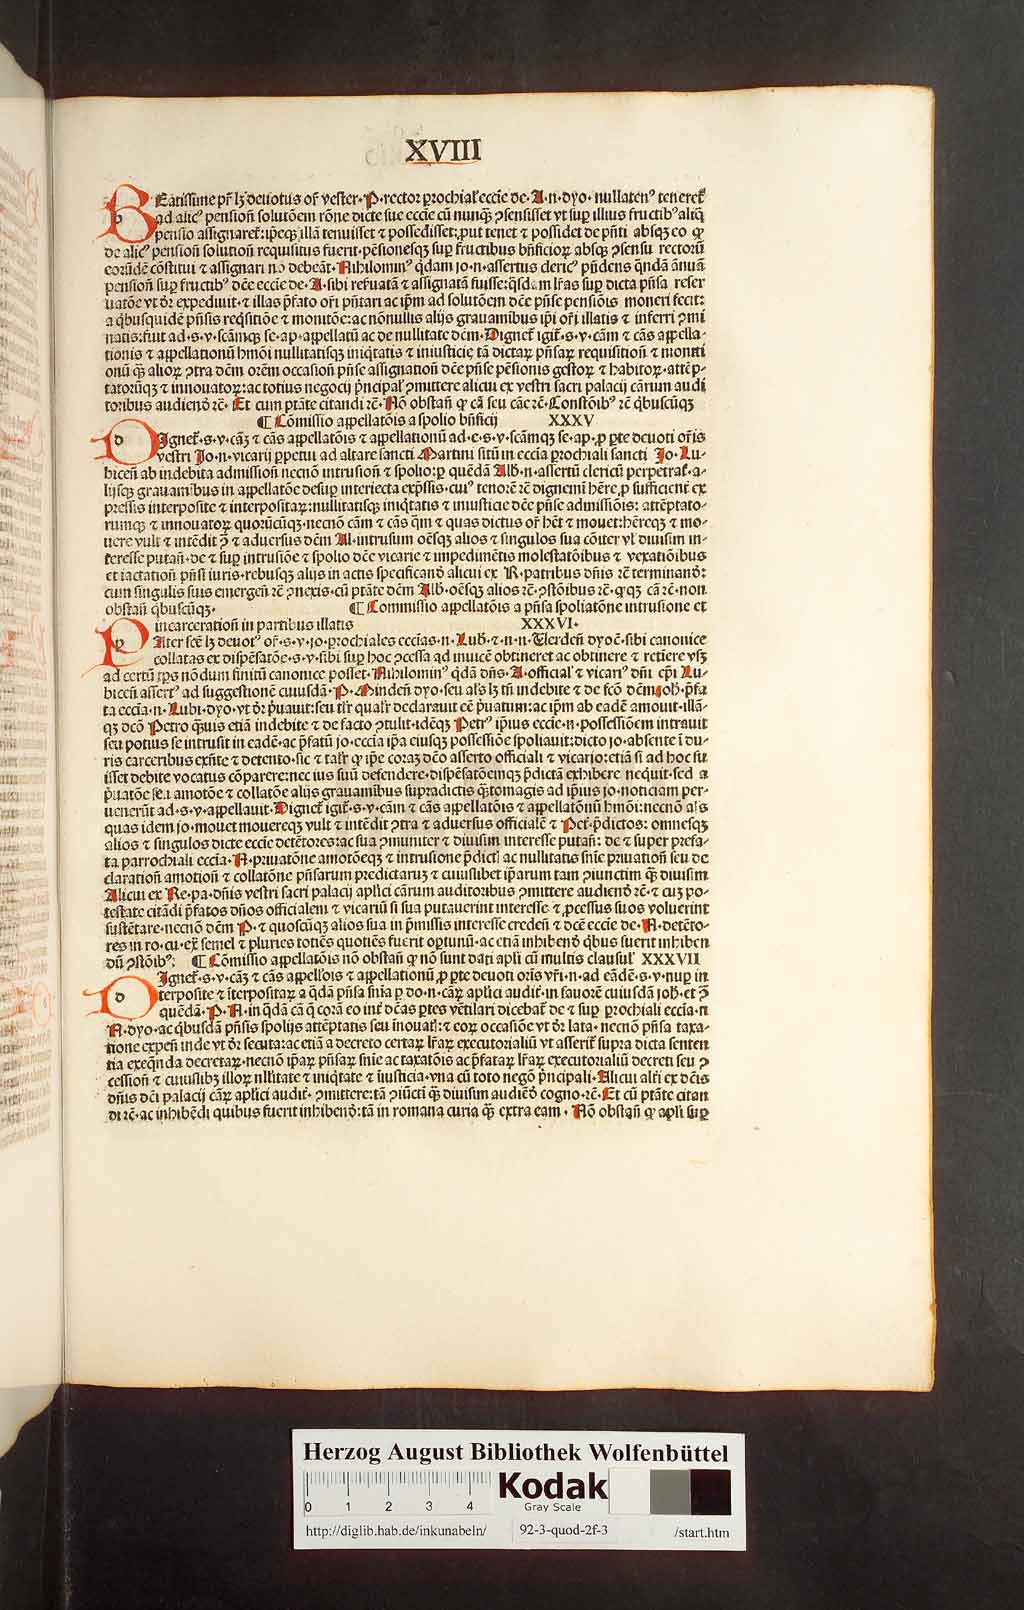 XVIII
BEatissime pr̄ lꝫ deuotus or̄ vester·P·rector ꝑrochial̓ eccīe de·A·n·dyo·nullatenꝰ teneret̉
ad alicꝰ pension̄ solutōem rōne dicte sue eccīe cū nunqꝫ ꝯsensisset vt suꝑ illius fructibꝰ aliq̄
pensio assignaret̉:ip̄eqꝫ illā tenuisset ⁊ possedisset:ꝓut tenet ⁊ possidet de pn̄ti absqꝫ eo ꝙ
de alicꝰ pension̄ solution̄ requisitus fuerit·pēsionesqꝫ suꝑ fructibus bn̄ficioꝝ absqꝫ ꝯsensu rectorū
eorūdē cōstitui ⁊ assignari nō debeāt·Nihilominꝰ q̇dam jo·n·assertus dericꝰ pn̄dens q̇ndā ānuā
pension̄ suꝑ fructibꝰ dc̄e eccīe de·A·sibi reẜuatā ⁊ assignatā fuisse:q̇sdam lr̄as suꝑ dicta pn̄sa reser
uatōe vt dr̄ expediuit·⁊ illas p̄fato or̄i pn̄tari ac ip̄m ad solutōem dc̄e pn̄se pensiōis moneri fecit:
a q̇busquidē pn̄sis reqͥsitiōe ⁊ monitōe:ac nōnullis alijs grauamibus ip̄i or̄i illatis ⁊ inferri ꝯmi
natis:fuit ad·s·v·scāmqꝫ se·ap·appellatū ac de nullitate dc̄m·Dignet̉ igit̉·s·v·cām ⁊ cās appella-
tionis ⁊ appellationū hmōi nullitatisqꝫ iniq̇tatis ⁊ iniusticie tā dictaꝝ pn̄saꝝ requisition̄ ⁊ moniti
onū qꝫ alioꝝ ꝯtra dc̄m orēm occasion̄ pn̄se assignation̄ dc̄e pn̄se pēsionis gestoꝝ ⁊ habitoꝝ·attēp-
tatorūqꝫ ⁊ innouatoꝝ:ac totius negocij pn̄cipal̓ ꝯmittere alicui ex vestri sacri palacij cārum audi
toribus audiend̄ rc̄·Et cum ptāte citandi rc̄·Nō obstan̄ ꝙ cā seu cāe rc̄·Constōibꝰ rc̄ q̇buscūqꝫ
¶ Cōmissio appellatōis a spolio bn̄ficij XXXV
DIgnet̉·s·v·cāꝫ ⁊ cās appellatōis ⁊ appellationū ad·e·s·v·scāmqꝫ se·ap·ꝓ ꝑte deuoti or̄is
vestri Jo·n·vicarij ꝑpetui ad altare sancti Martini sitū in eccīa ꝑrochiali sancti Jo·Lu-
bicen̄ ab indebita admission̄ necnō intrusion̄ ⁊ spolio:ꝑ quēdā Alb·n·assertū clericū perpetrat̉·a-
lijsqꝫ grauamibus in appellatōe desuꝑ interiecta exp̄ssis·cuiꝰ tenorē rc̄ dignemī hēre ꝓ sufficient̉ ex
pressis interposite ⁊ interpositaꝝ:nullitatisqꝫ iniq̇tatis ⁊ iniusticie dc̄e pn̄se admissiōis:attēptato-
rumqꝫ ⁊ innouatoꝝ quorūcūqꝫ·necnō cām ⁊ cās q̄m ⁊ quas dictus or̄ hēt ⁊ mouet:hēreqꝫ ⁊ mo-
uere vult ⁊ intēdit ꝯ̄ ⁊ aduersus dc̄m Al·intrusum oēsqꝫ alios ⁊ singulos sua cōiter vl̓ diuisim in-
teresse putan̄·de ⁊ suꝑ intrusiōe ⁊ spolio dc̄e vicarie ⁊ impedimētis molestatōibus ⁊ vexatiōibus
et iactation̄ pn̄si iuris·rebusqꝫ alijs in actis specificand̄ alicui ex R·patribus dn̄is rc̄ terminand̄:
cum singulis suis emergen̄ rc̄ ꝯnexis·cū ptāte dc̄m Alb·oēsqꝫ alios rc̄·ꝯstōibus rc̄·ꝙqꝫ cā rc̄·non
obstan̄ q̇buscūqꝫ· ¶ Commissio appellatōis a pn̄sa spoliatōne intrusione et
incarceration̄ in partibus illatis XXXVI·
PAter scē lꝫ deuotꝰ or̄·s·v·jo·ꝑrochiales eccīas·n·Lub̄·⁊·n·n·Werden̄ dyoc̄·sibi canonice
collatas ex dispēsatōe·s·v·sibi suꝑ hoc ꝯcessa ad inuicē obtineret ac obtinere ⁊ retīere vsqꝫ
ad certū tp̄s nōdum finitū canonice posset·Nihilominꝰ q̇dā dn̄s·A·official̓ ⁊ vicariꝰ dn̄i ep̄i Lu-
bicen̄ assertꝰ ad suggestionē cuiusdā·P·Minden̄ dyo·seu al̓s lꝫ tn̄ indebite ⁊ de fc̄o dc̄m joh̄·p̄fa
ta eccīa·n·Lubi·dyo·vt dr̄:p̄uauit:seu tlr̄ qualr̄ declarauit eē p̄uatum:ac ip̄m ab eadē amouit·illā-
qꝫ dc̄o Petro q̇uis etiā indebite ⁊ de facto ꝯtulit·idēqꝫ Petrꝰ ip̄ius eccīe·n·possessiōem intrauit
seu potius se intrusit in eadē·ac p̄fatū jo·eccīa ip̄a eiusqꝫ possessiōe spoliauit:dicto jo·absente ī du-
ris carceribus exn̄te ⁊ detento·sic ⁊ talr̄ ꝙ ip̄e coraꝫ dc̄o asserto officiali ⁊ vicario:etiā si ad hoc fu
isset debite vocatus cōparere:nec ius suū defendere·dispēsatōemqꝫ p̄dictā exhibere nequit·sed a
p̄uatōe seu amotōe ⁊ collatōe alijs grauamībus supradictis q̇tomagis ad ip̄ius jo·noticiam per-
uenerūt ad·s·v·appellauit·Dignet̉ igit̉·s·v·cām ⁊ cās appellatōis ⁊ appellatōnū hmōi:necnō al̓s
quas idem jo·mouet mouereqꝫ vult ⁊ intēdit ꝯtra ⁊ aduersus officialē ⁊ Pet̉·p̄dictos:omnesqꝫ
alios ⁊ singulos dicte eccīe detētores:ac sua ꝯmuniter ⁊ diuisim interesse putan̄:de ⁊ super prefa-
ta parrochiali eccīa·A·priuatōne amotōneqꝫ ⁊ intrusione p̄dict̉ ac nullitatis snīe priuation̄ seu de
claration̄ amotion̄ ⁊ collatōne pn̄sarum predictaruꝫ ⁊ cuiuslibet ip̄arum tam ꝯiunctim qꝫ diuisim
Alicui ex Re·pa·dn̄is vestri sacri palacij apl̓ici cārum auditoribus ꝯmittere audiend̄ rc̄·⁊ cuꝫ po-
testate citādi p̄fatos dn̄os officialem ⁊ vicariū si sua putauerint interesse ⁊ ꝓcessus suos voluerint
sustētare·necnō dc̄m·P·⁊ quoscūqꝫ alios sua in p̄missis interesse creden̄ ⁊ dc̄e eccīe de·A·detēto-
res in ro·cu·et ex̄ semel ⁊ pluries totiēs quotiēs fuerit optunū·ac etiā inhibend̄ q̇bus fuerit inhiben
dū ꝯstōibꝰ: ¶ Cōmissio appellatōis nō obstan̄ ꝙ nō sunt dati apl̓i cū multis clausul̓ XXXVII
DIgnet̉·s·v·cāꝫ ⁊ cās appell̓ois ⁊ appellationū ꝓ ꝑte deuoti oris vr̄i·n·ad eādē·s·v·nuꝑ in
terposite ⁊ īterpositaꝝ a q̇dā pn̄sa snīa ꝑ do·n·cāꝝ apl̓ici audit̉·in fauorē cuiusdā joh̄·et ꝯ̄
quēdā·P·A·in q̇dā cā q̄ corā eo int̉ dc̄as ꝑtes vētilari dicebat̉ de ⁊ suꝑ ꝑrochiali eccīa·n
A·dyo·ac q̇busdā pn̄sis spolijs attēptatis seu inouat̉:⁊ eoꝝ occasiōe vt dr̄ lata·necnō pn̄sa taxa-
tione expen̄ inde vt dr̄ secuta:ac etiā a decreto certaꝝ lr̄aꝝ executorialiū vt asserit̉ supra dicta senten
tia exeq̇nda decretaꝝ·necnō ip̄aꝝ pn̄saꝝ snīe ac taxatōis ac p̄fataꝝ lr̄aꝝ executorialiū decreti seu ꝯ
cession̄ ⁊ cuiuslibꝫ illoꝝ nll̓itate ⁊ iniq̇tate ⁊ īiusticia·vna cū toto negō pn̄cipali·Alicui alt̓i ex dc̄is
dn̄is dc̄i palacij cāꝝ apl̓ici audit̉·ꝯmittere:tā ꝯiūcti qꝫ diuisim audiēd̄ cogno·rc̄·Et cū ptāte citan
di rc̄·ac inhibēdi quibus fuerit inhibend̄:tā in romana curia qꝫ extra eam·Nō obstan̄ ꝙ apl̓i suꝑ
Herzog August Bibliothek Wolfenbüttel
0 1 2 3 4
Kodak
Gray Scale
http://diglib.hab.de/inkunabeln/ 92-3-quod-2f-3 /start.htm